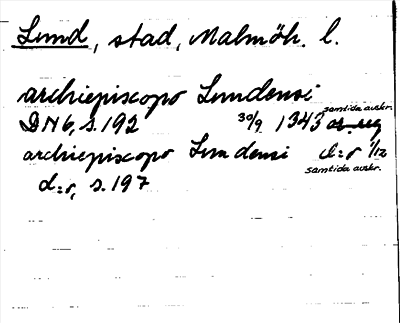 Lund, stad, Malmöh. l.
archiepiscopo Lundensi
samtida avskr.
DN 6, s. 192 30/9 1343 or reg
archiepiscopo Lundensi d:o 1/12
samtida avskr.
d:o, s. 197